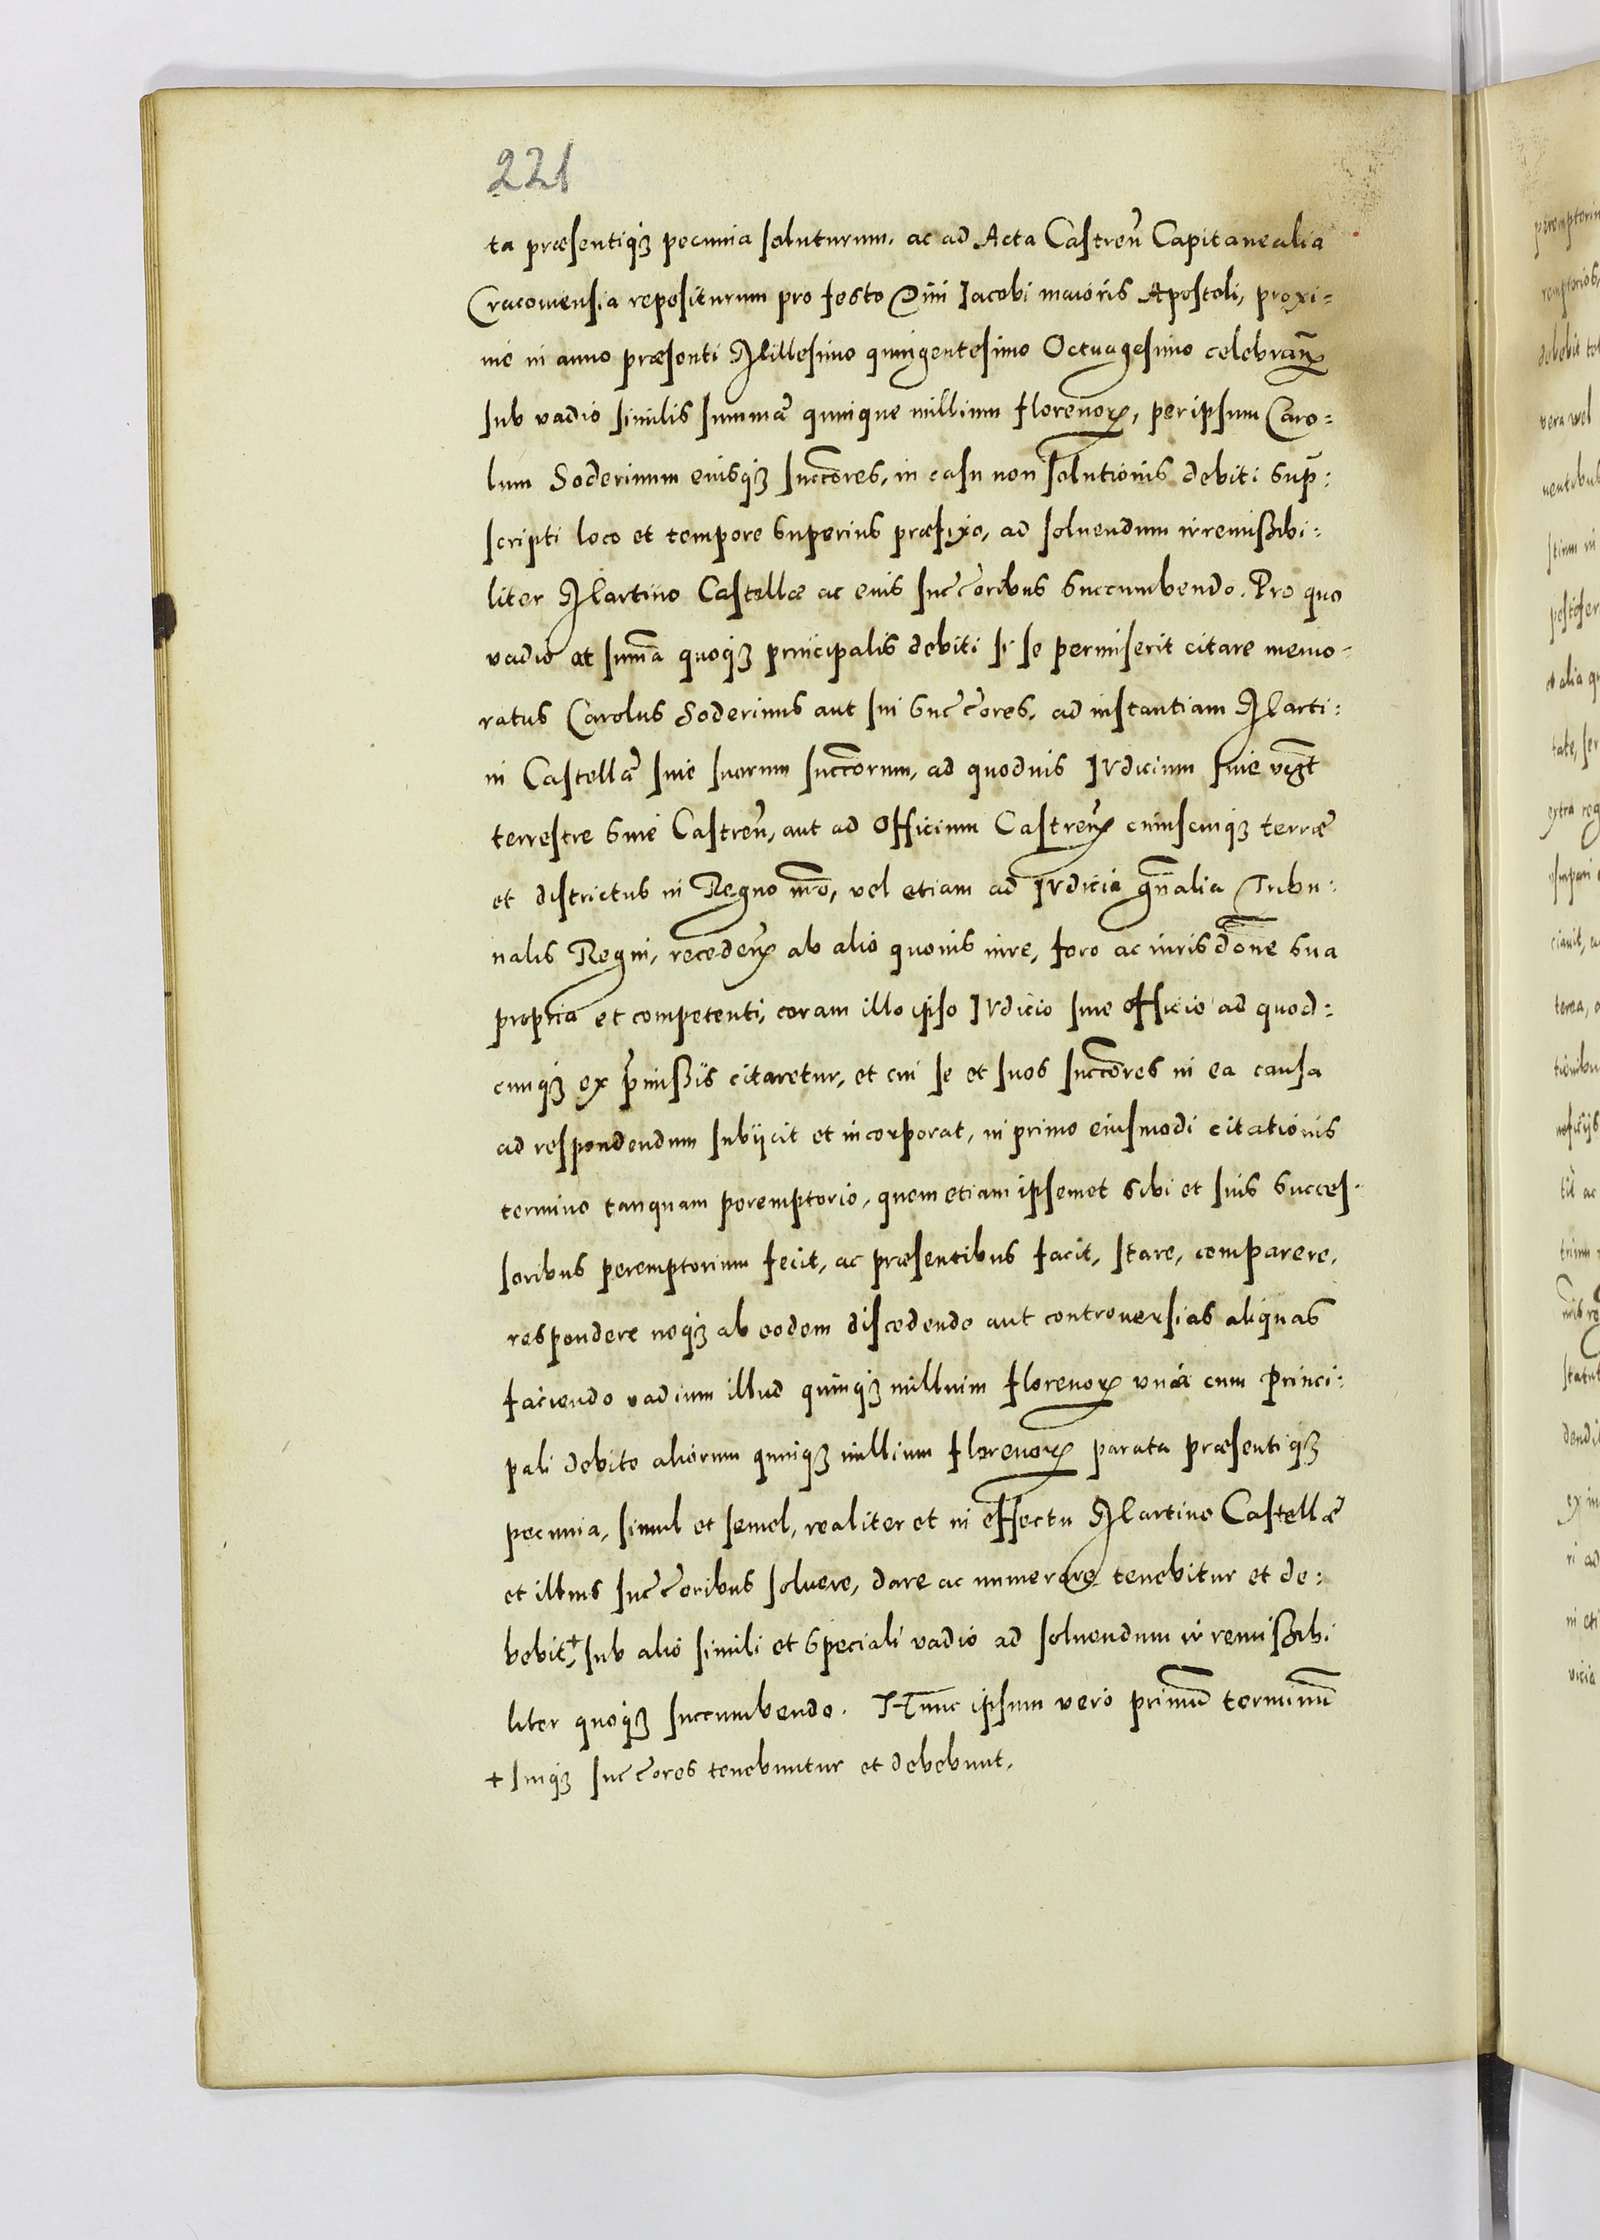 221
ta præsentiq₃ pecunia soluturum, ac ad Acta Castreñ Capitanealia
Cracouiensia repositurum pro festo Diui Iacobi maioris Apostoli, proxi=
me in anno præsenti Millesimo quingentesimo Octuagesimo celebrañ
sub vadio similis summæ quinque millium florenoꝝ, per ipsum Caro=
lum Soderinum eiusq₃ succores, in casu non solutionis debiti sup̄:
scripti loco et tempore superius præfixo, ad soluendum irremissibi:
liter Martino Castellæ ac eius succoribus succumbendo. Pro quo
vadio et suma quoq₃ principalis debiti si se permiserit citare memo-
ratus Carolus Soderinus aut sui succores, ad instantiam Marti:
ni Castellæ siue suorum succorum, ad quoduis Iudicium siue vigt
terrestre siue Castreñ, aut ad Officium Castreñ cuiuscunq₃ terræ
et districtus in Regno nro, vel etiam ad Iudicia gnalia Tribu:
nalis Regni, recedeñ ab alio quouis iure, foro ac iurisdone sua
propria et competenti, coram illo ipso Iudicio siue officio ad quod:
cunq₃ ex p̄missis citaretur, et cui se et suos succores in ea causa
ad respondendum subijcit et incorporat, in primo eiusmodi citationis
termino tanquam peremptorio, quem etiam ipsemet sibi et suis succes-
soribus peremptorium fecit, ac præsentibus facit, stare, comparere,
respondere neq₃ ab eodem discedendo aut controuersias aliquas
faciendo vadium illud quinq₃ millium florenoꝝ vná cum princi:
pali debito aliorum quinq₃ millium florenoꝝ parata præsentiq₃
pecunia, simul et semel, realiter et in effectu Martino Castellæ
et illius succoribus soluere, dare ac numerare tenebitur et de:
bebit,+ sub alio simili et speciali vadio ad soluendum irremissibi
liter quoq₃ succumbendo. Hunc ipsum vero primū terminū
+ suiq₃ succores tenebuntur et debebunt,